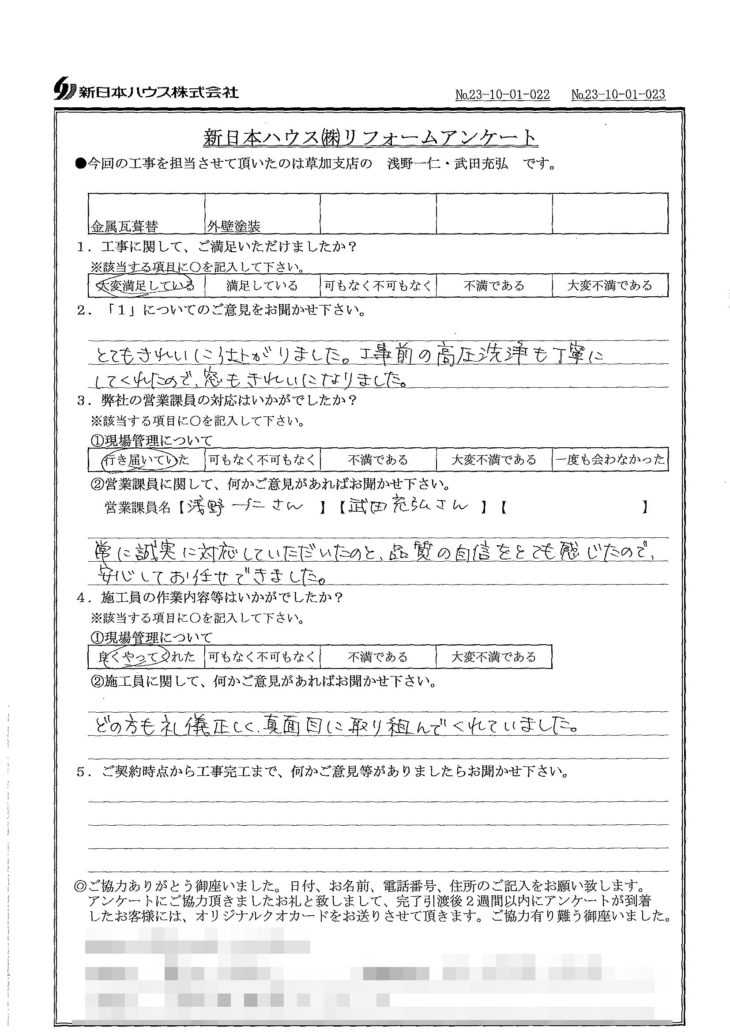 新日本ハウス株式会社
No.23-10-01-022 No.23-10-01-023
新日本ハウス㈱リフォームアンケート
●今回の工事を担当させて頂いたのは草加支店の 浅野一仁・武田充弘 です。
金属瓦葺替 外壁塗装
1．工事に関して、ご満足いただけましたか？
※該当する項目に○を記入して下さい。
大変満足している 満足している 可もなく不可もなく 不満である 大変不満である
2．「1」についてのご意見をお聞かせ下さい。
とてもきれいに仕上がりました。工事前の高圧洗浄も丁寧に
してくれたので、窓もきれいになりました。
3．弊社の営業課員の対応はいかがでしたか？
※該当する項目に○を記入して下さい。
①現場管理について
行き届いていた 可もなく不可もなく 不満である 大変不満である 一度も会わなかった
②営業課員に関して、何かご意見があればお聞かせ下さい。
営業課員名【浅野一仁さん 】【武田充弘さん 】【 】
常に誠実に対応していただいたのと、品質の自信をとても感じたので、
安心してお任せできました。
4．施工員の作業内容等はいかがでしたか？
※該当する項目に○を記入して下さい。
①現場管理について
良くやってくれた 可もなく不可もなく 不満である 大変不満である
②施工員に関して、何かご意見があればお聞かせ下さい。
どの方も礼儀正しく、真面目に取り組んでくれていました。
5．ご契約時点から工事完工まで、何かご意見等がありましたらお聞かせ下さい。
◎ご協力ありがとう御座いました。日付、お名前、電話番号、住所のご記入をお願い致します。
アンケートにご協力頂きましたお礼と致しまして、完了引渡後2週間以内にアンケートが到着
したお客様には、オリジナルクオカードをお送りさせて頂きます。ご協力有り難う御座いました。